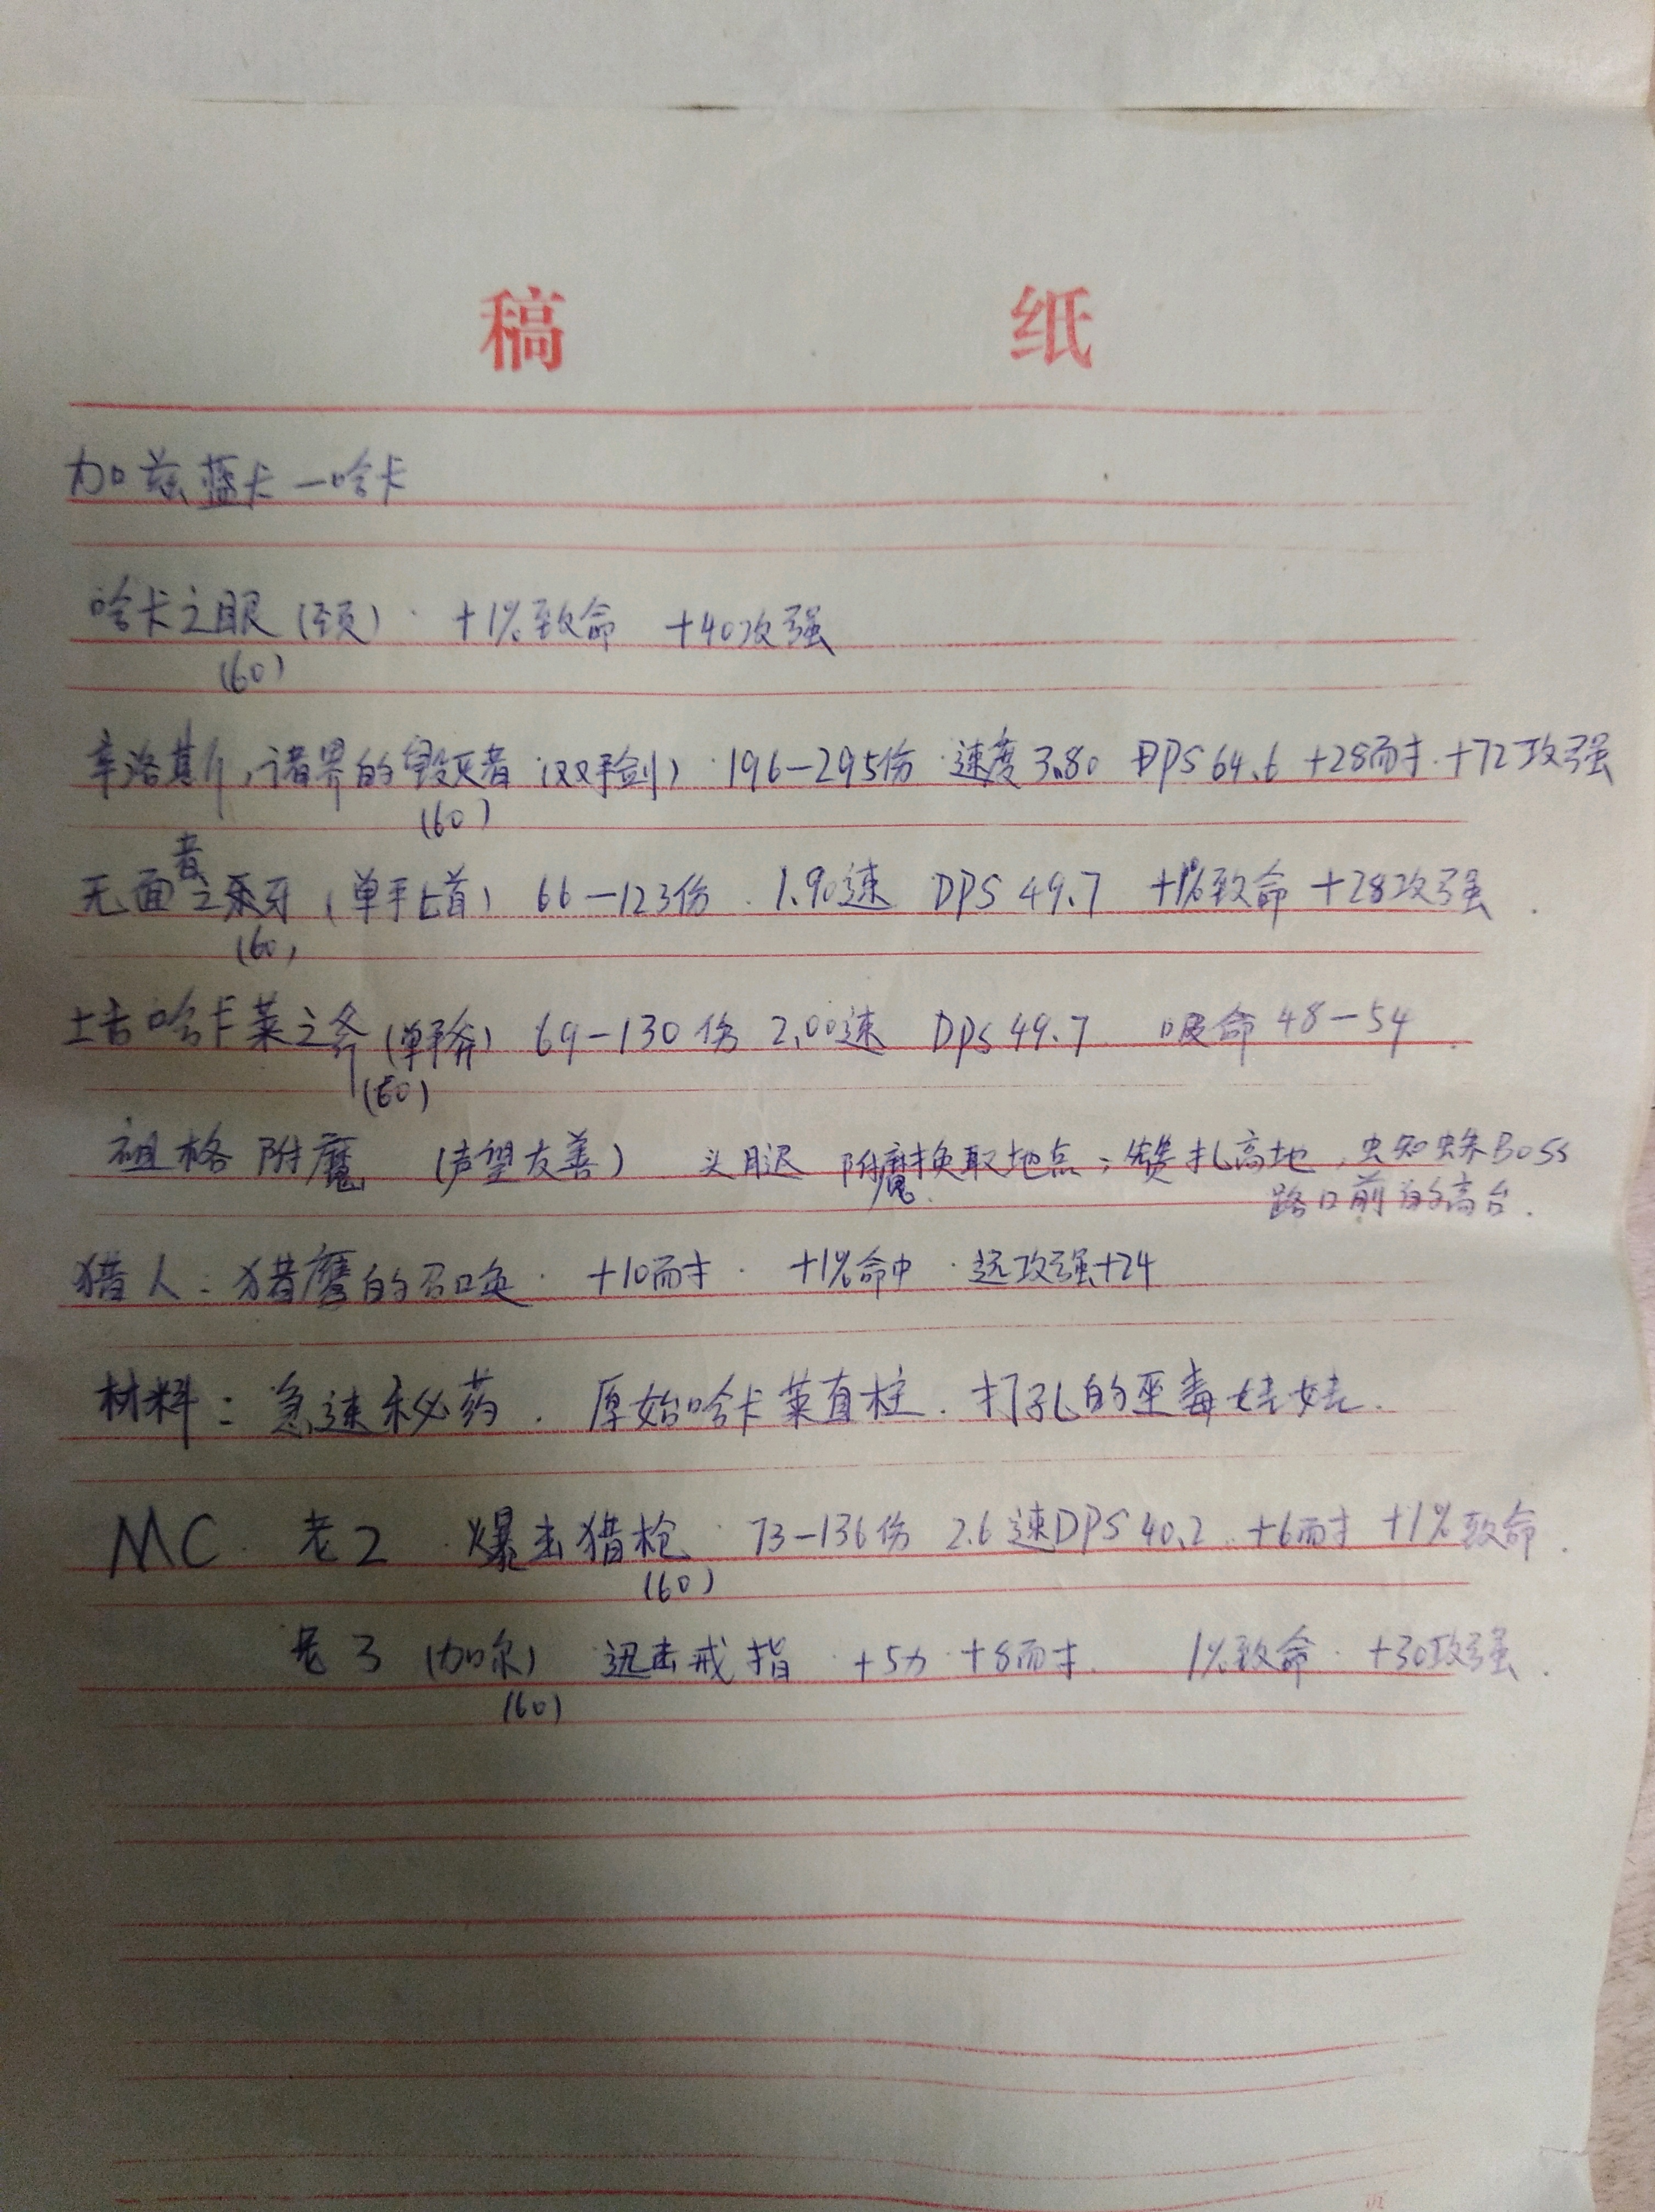 稿 纸
加兹蓝卡—哈卡
哈卡之眼(颈) +1%致命 +40攻强
(60)
辛洛斯,诸界的毁灭者(双手剑) 196—295伤 速度3.80 DPS 64.6 +28耐 +72攻强
(60)
者
无面之牙(单手匕首) 66—123伤 1.90速 DPS 49.7 +1%致命 +28攻强
(60)
古哈卡莱之斧(单手斧) 69—130伤 2.00速 DPS 49.7 吸命48—54
(60)
祖格附魔 (声望友善) 附魔换取地点:赞扎高地,蜘蛛Boss
路口前的高台.
猎人:猎魔的召唤 +10耐 +1%命中 远攻强+24
材料:急速秘药. 原始哈卡莱直柱. 打孔的巫毒娃娃.
MC 老2 爆击猎枪 73—136伤 2.6速 DPS 40.2 +6耐 +1%致命.
(60)
老3 (加尔) 迅击戒指 +5力 +8耐 1%致命 +30攻强.
(60)